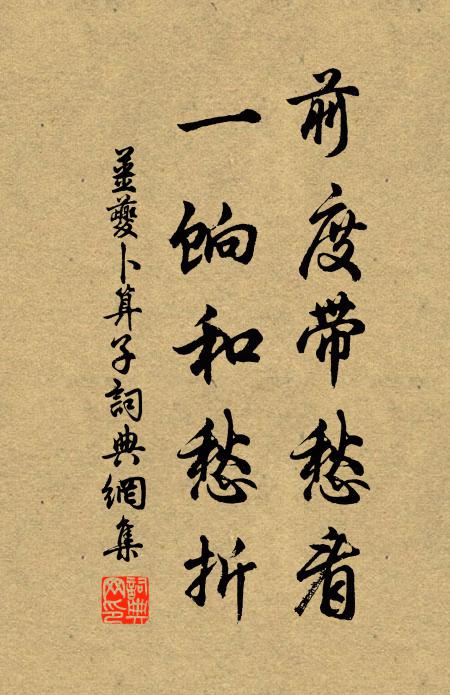 前度带愁看
一餉和愁折
姜夔卜算子詞典網集
詞典网印